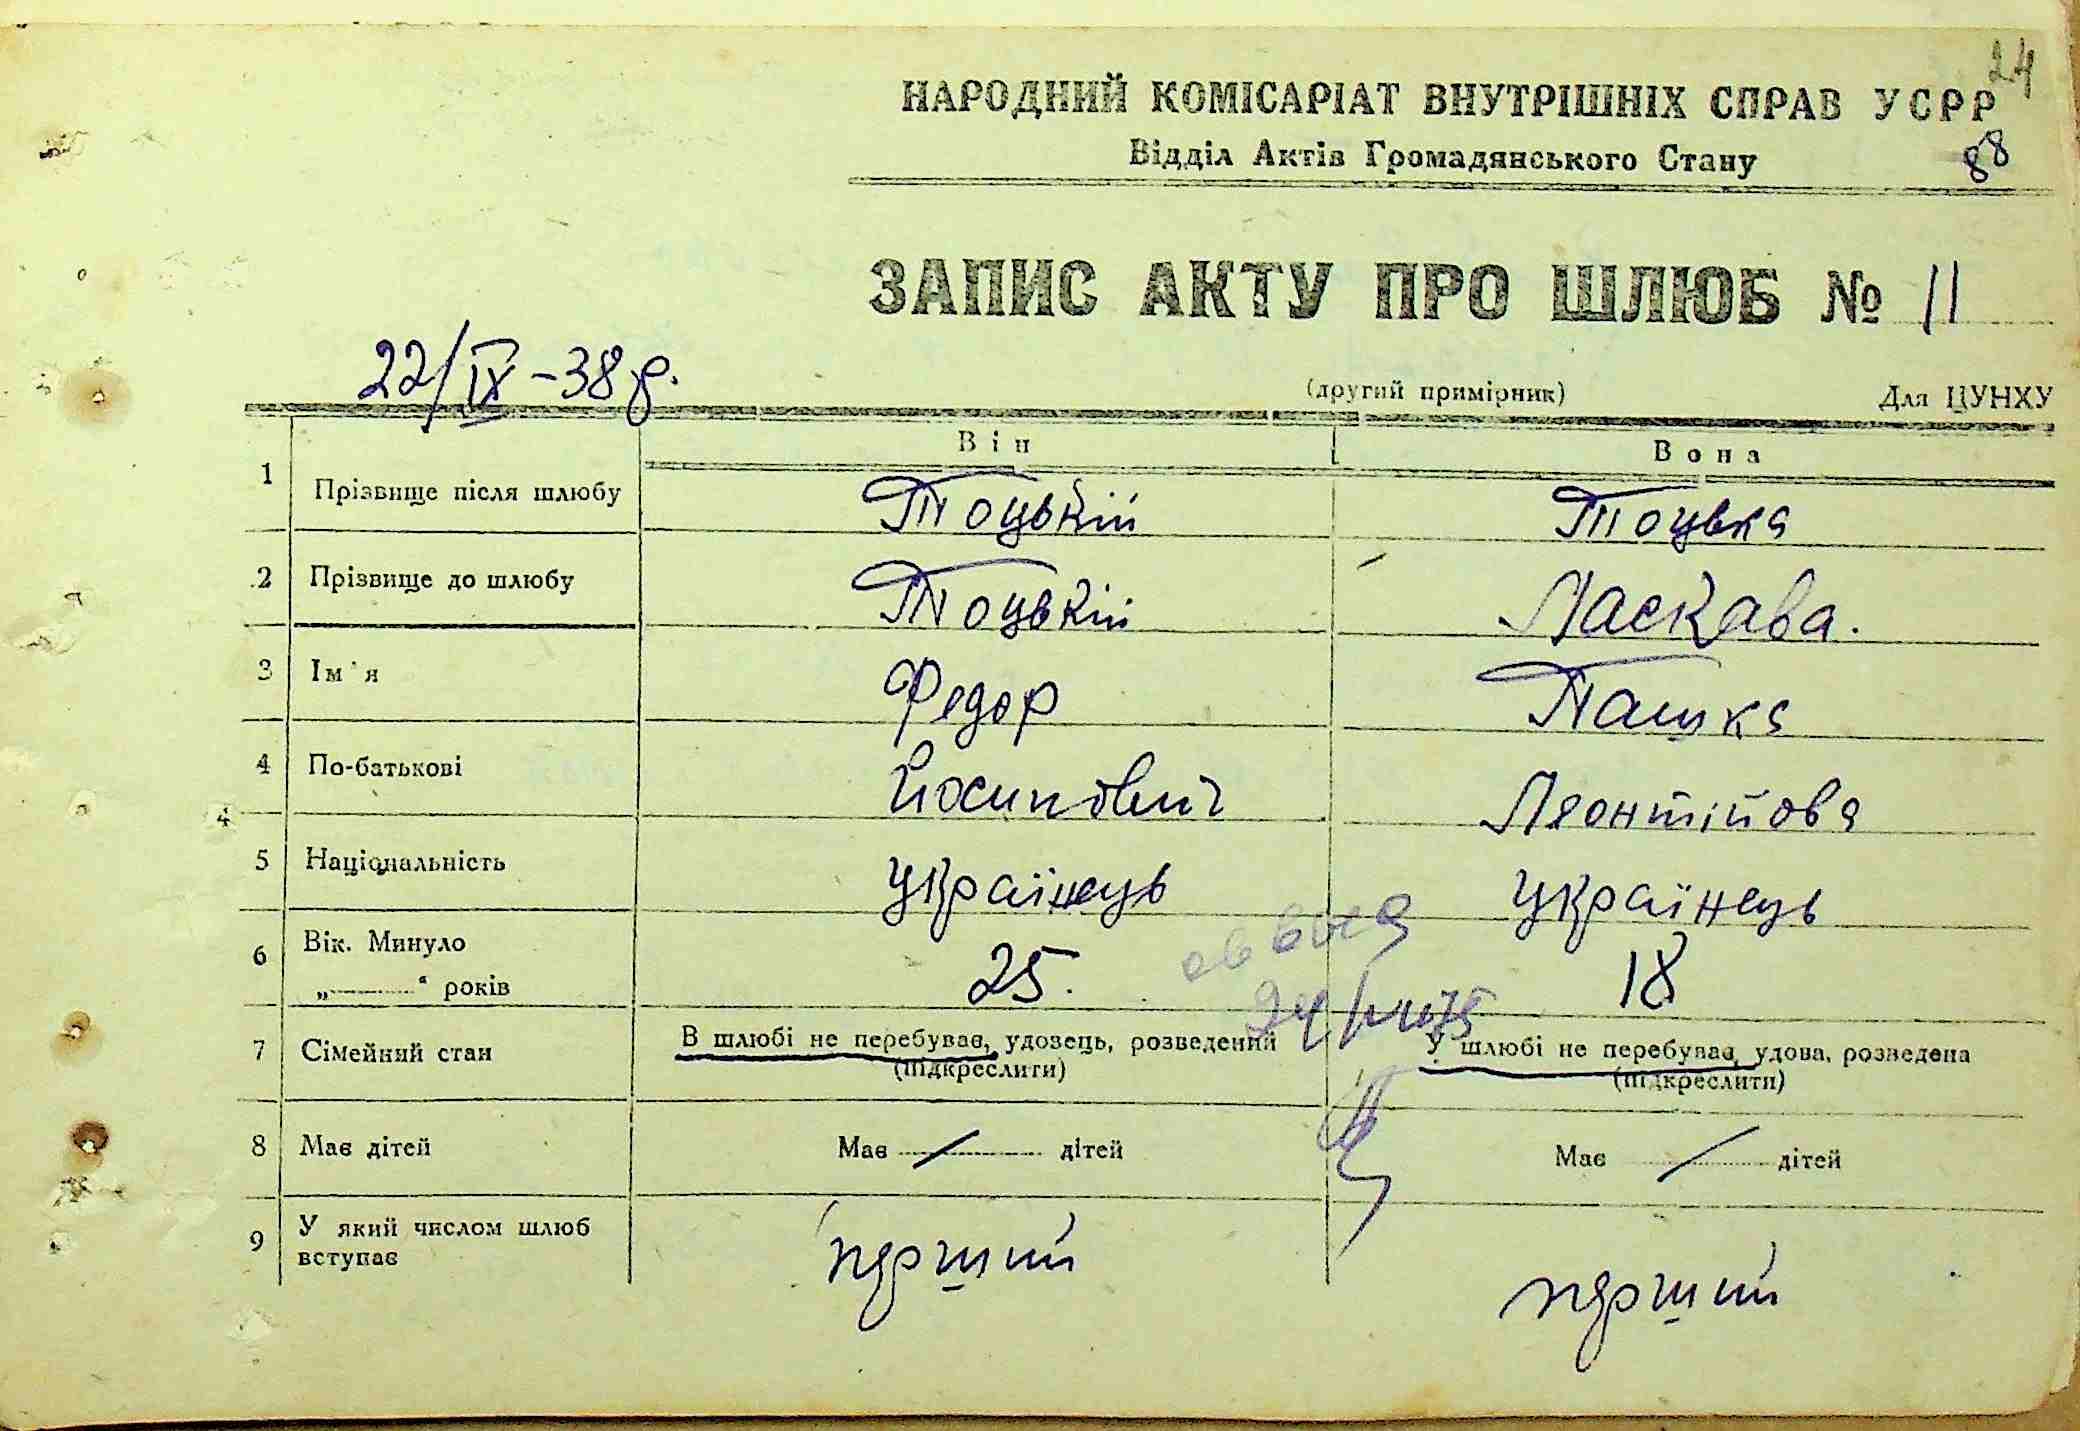 24
НАРОДНИЙ КОМІСАРІАТ ВНУТРІШНІХ СПРАВ УСРР
Відділ Актів Громадянського Стану
88
ЗАПИС АКТУ ПРО ШЛЮБ № 11
22/IX-38 р.
(другий примірник) Для ЦУНХУ
Він Вона
1 Прізвище після шлюбу Тоцький Тоцька
2 Прізвище до шлюбу Тоцький Ласкава.
3 Ім'я Федор Пашка
4 По-батькові Йосипович Ляонтійова
4
5 Національність Українець Українець
6 Вік. Минуло
„ “ років 25. 18
24/
7 Сімейний стан В шлюбі не перебуває, удовець, розведений У шлюбі не перебуває, удова, розведена
(підкреслити) (підкреслити)
8 Має дітей Має / дітей Має / дітей
9 У який числом шлюб
вступає перший перший